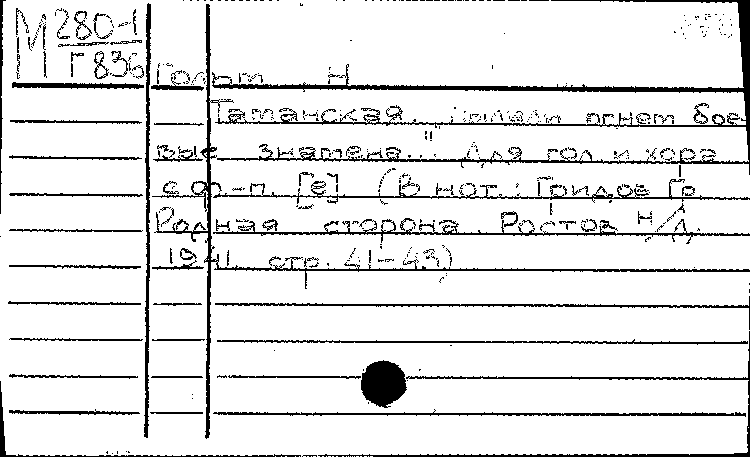 М 280-1
Г 836
Гольт Н
Таманская. Пылали огнем бое-
вые знамена..." Для гол. и хора
с ф.-п. [e] (В нот.: Гридов Гр.
Родная сторона. Ростов н/Д.
1941. стр. 41-43)